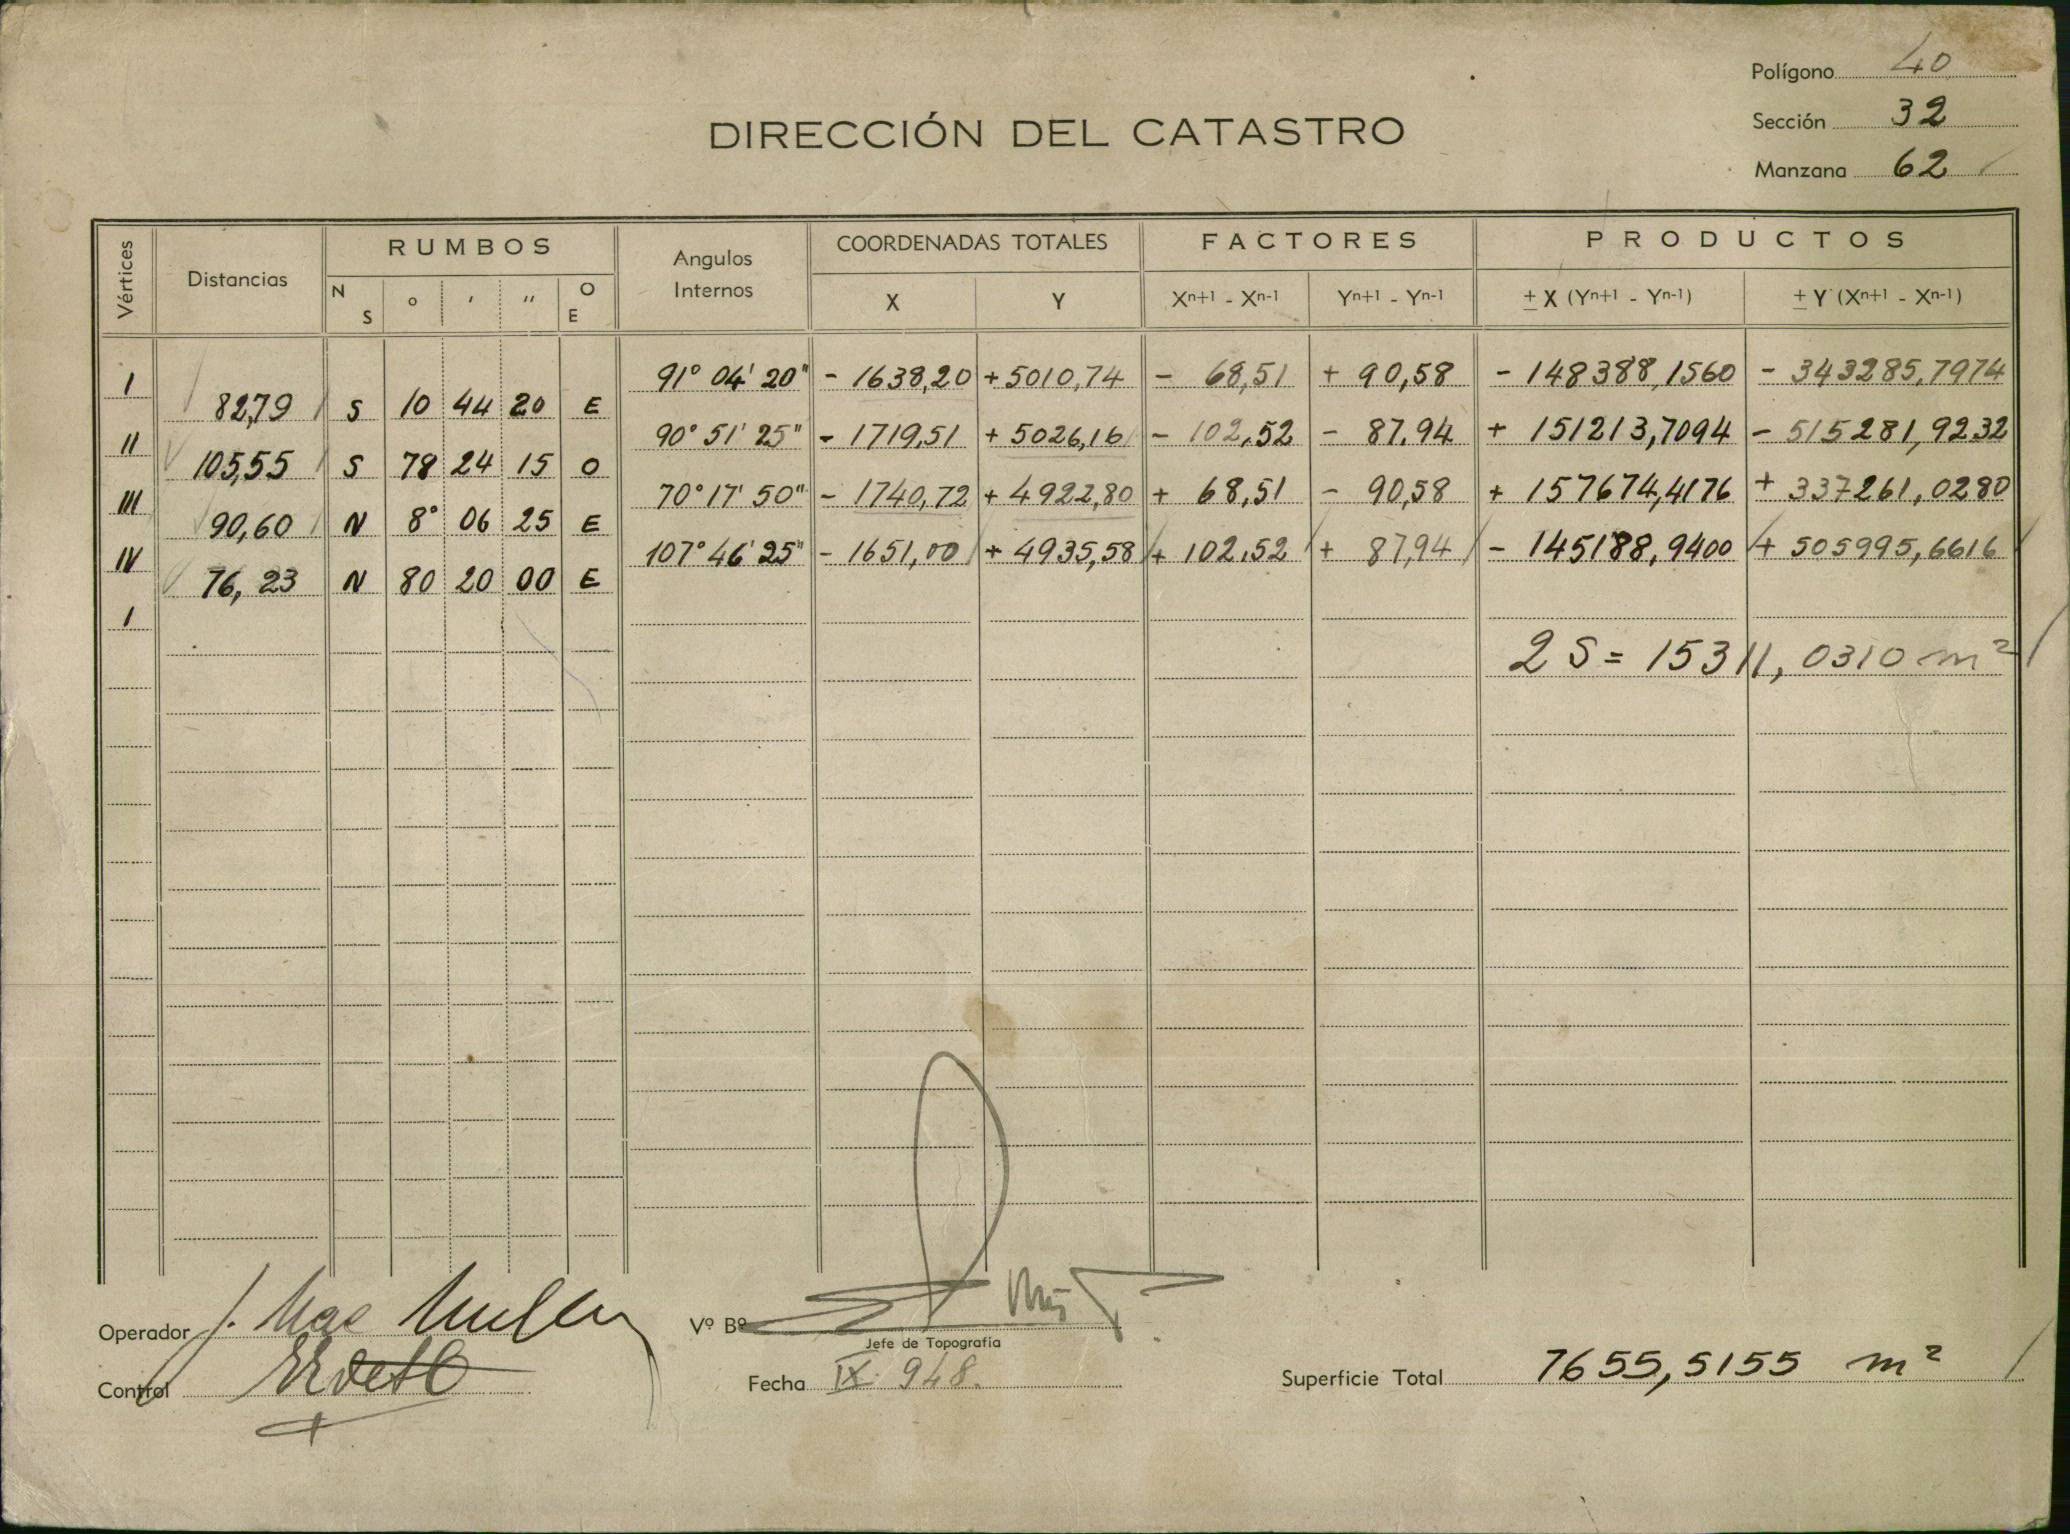 Polígono 40
Sección 32
Manzana 62
DIRECCIÓN DEL CATASTRO
Vértices Distancias RUMBOS Angulos Internos COORDENADAS TOTALES FACTORES PRODUCTOS
N S o ' '' O E X Y Xn+1 - Xn-1 Yn+1 - Yn-1 ± X (Yn+1 - Yn-1) ± Y (Xn+1 - Xn-1)
I 91° 04' 20" - 1638,20 +5010,74 - 68,51 + 90,58 - 148388,1560 - 343285,7974
82,79 S 10 44 20 E
II 90° 51' 25" - 1719,51 + 5026,16 - 102,52 - 87,94 + 151213,7094 - 515281,9232
105,55 S 78 24 15 O
III 70° 17' 50" - 1740,72 + 4922,80 + 68,51 - 90,58 + 157674,4176 + 337261,0280
90,60 N 8° 06 25 E
IV 107° 46' 25" - 1651,00 + 4935,58 + 102,52 + 87,94 - 145188,9400 + 505995,6616
76,23 N 80 20 00 E
I
2 S = 15311,0310 m²
Operador J. Mac
Vº Bº
Jefe de Topografía
Control
Fecha IX 948.
Superficie Total 7655,5155 m²